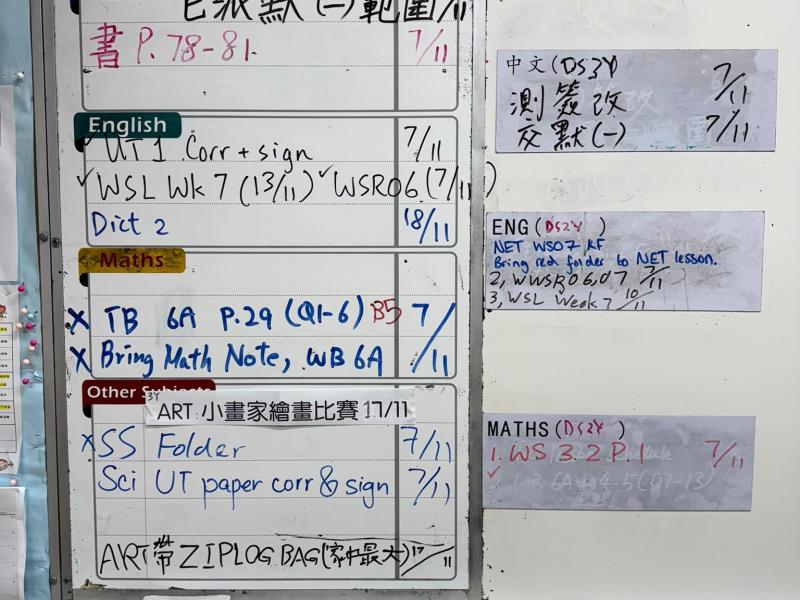 默(一)範圍 /11
書 P.78-81 7/11
English
UT1 Corr + sign 7/11
✓WSL Wk 7 (13/11) ✓WSR06 (7/11)
Dict 2 18/11
Maths
X TB 6A P.29 (Q1-6) B5 7/11
X Bring Math Note, WB 6A
Other Subjects
3Y ART 小畫家繪畫比賽 17/11
X SS Folder 7/11
Sci UT paper corr & sign 7/11
ART 帶 ZIPLOG BAG (家中最大) 17/11
中文(DS3Y
測簽改 7/11
交默(一) 7/11
ENG (DS2Y )
NET WS07 KF
Bring red folder to NET lesson.
2, WWSR06,07 7/11
3, WSL Week 7 10/11
MATHS (DS2Y )
1. WS 3.2 P.1 7/11